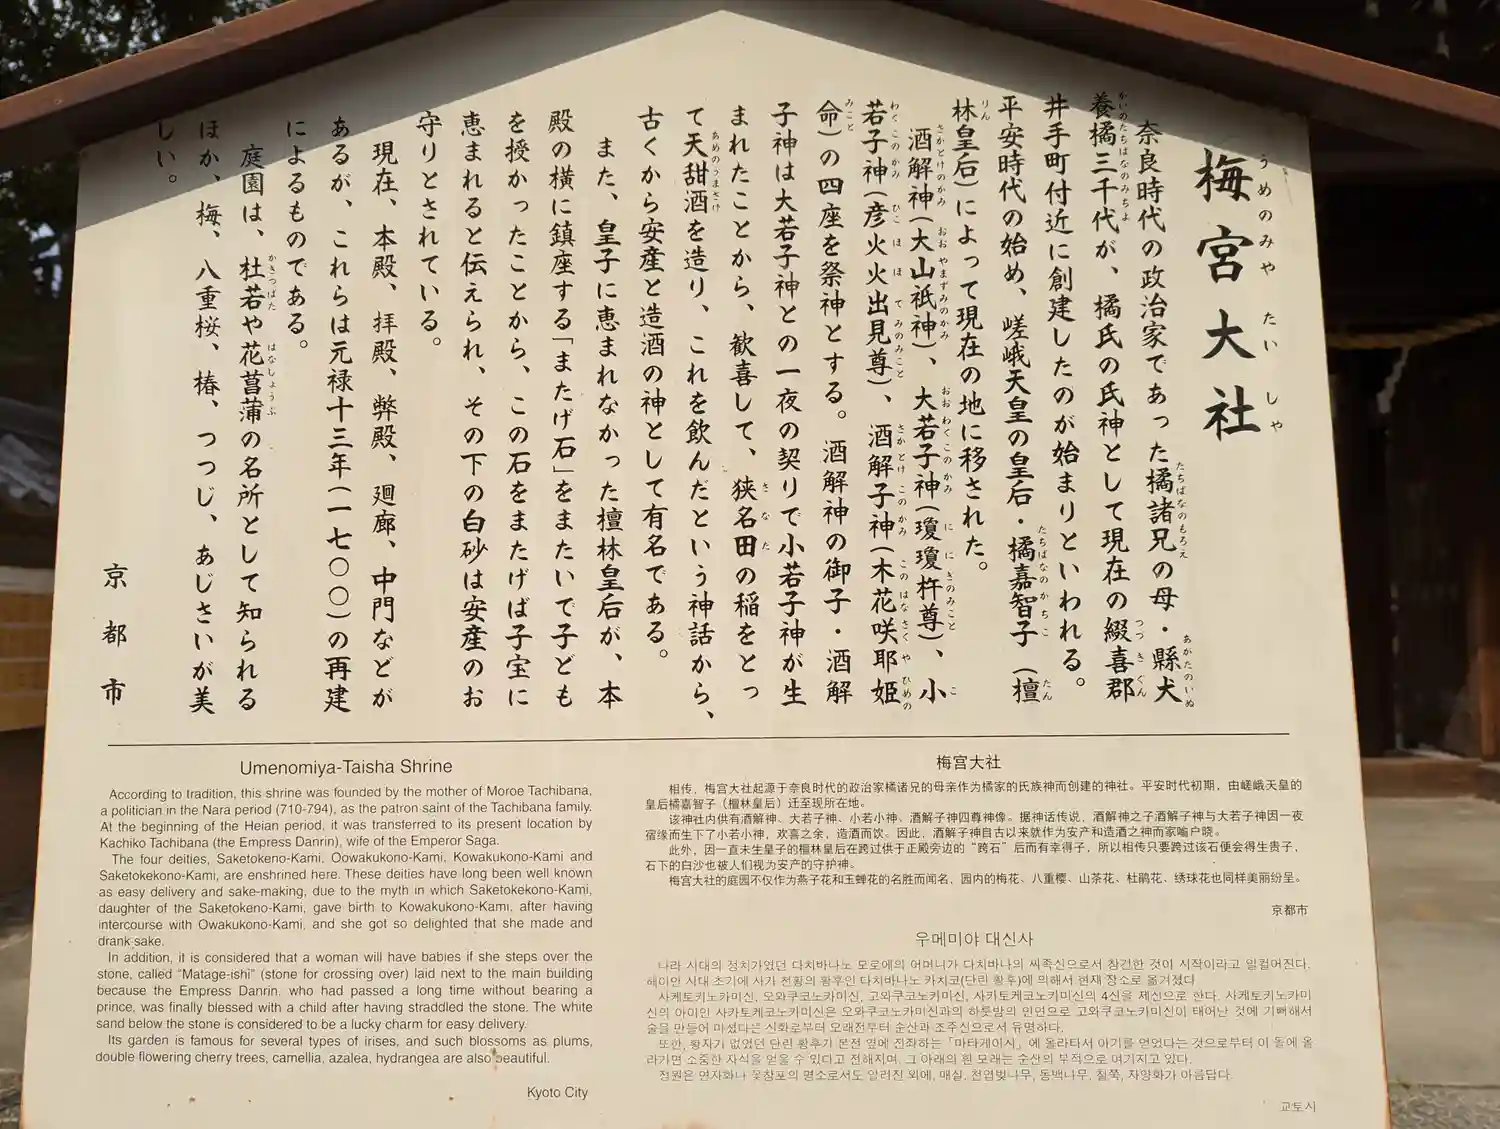 梅宮大社
うめのみや たいしゃ
奈良時代の政治家であった橘諸兄の母・縣犬
養橘三千代が、橘氏の氏神として現在の綴喜郡
井手町付近に創建したのが始まりといわれる。
平安時代の始め、嵯峨天皇の皇后・橘嘉智子（檀
林皇后）によって現在の地に移された。
酒解神（大山祇神）、大若子神（瓊瓊杵尊）、小
若子神（彦火火出見尊）、酒解子神（木花咲耶姫
命）の四座を祭神とする。酒解神の御子・酒解
子神は大若子神との一夜の契りで小若子神が生
まれたことから、歓喜して、狭名田の稲をとっ
て天甜酒を造り、これを飲んだという神話から、
古くから安産と造酒の神として有名である。
また、皇子に恵まれなかった檀林皇后が、本
殿の横に鎮座する「またげ石」をまたいで子ども
を授かったことから、この石をまたげば子宝に
恵まれると伝えられ、その下の白砂は安産のお
守りとされている。
現在、本殿、拝殿、弊殿、廻廊、中門などが
あるが、これらは元禄十三年（一七〇〇）の再建
によるものである。
庭園は、杜若や花菖蒲の名所として知られる
ほか、梅、八重桜、椿、つつじ、あじさいが美
しい。
京都市
Umenomiya-Taisha Shrine
According to tradition, this shrine was founded by the mother of Moroe Tachibana,
a politician in the Nara period (710-794), as the patron saint of the Tachibana family.
At the beginning of the Heian period, it was transferred to its present location by
Kachiko Tachibana (the Empress Danrin), wife of the Emperor Saga.
The four deities, Saketokeno-Kami, Oowakukono-Kami, Kowakukono-Kami and
Saketokekono-Kami, are enshrined here. These deities have long been well known
as easy delivery and sake-making, due to the myth in which Saketokekono-Kami,
daughter of the Saketokeno-Kami, gave birth to Kowakukono-Kami, after having
intercourse with Owakukono-Kami, and she got so delighted that she made and
drank sake.
In addition, it is considered that a woman will have babies if she steps over the
stone, called "Matage-ishi" (stone for crossing over) laid next to the main building
because the Empress Danrin, who had passed a long time without bearing a
prince, was finally blessed with a child after having straddled the stone. The white
sand below the stone is considered to be a lucky charm for easy delivery.
Its garden is famous for several types of irises, and such blossoms as plums,
double flowering cherry trees, camellia, azalea, hydrangea are also beautiful.
Kyoto City
梅宫大社
相传，梅宫大社起源于奈良时代的政治家橘诸兄的母亲作为橘家的氏族神而创建的神社。平安时代初期，由嵯峨天皇的
皇后橘嘉智子（檀林皇后）迁至现所在地。
该神社内供有酒解神、大若子神、小若小神、酒解子神四尊神像。据神话传说，酒解神之子酒解子神与大若子神因一夜
宿缘而生下了小若小神，欢喜之余，造酒而饮。因此，酒解子神自古以来就作为安产和造酒之神而家喻户晓。
此外，因一直未生皇子的檀林皇后在跨过供于正殿旁边的“跨石”后而有幸得子，所以相传只要跨过该石便会得生贵子，
石下的白沙也被人们视为安产的守护神。
梅宫大社的庭园不仅作为燕子花和玉蝉花的名胜而闻名，园内的梅花、八重樱、山茶花、杜鹃花、绣球花也同样美丽纷呈。
京都市
우메미야 대신사
나라 시대의 정치가였던 다치바나노 모로에의 어머니가 다치바나의 씨족신으로서 창건한 것이 시작이라고 일컬어진다.
헤이안 시대 초기에 사가 천황의 황후인 다치바나노 카치코(단린 황후)에 의해서 현재 장소로 옮겨졌다
사케토키노카미신, 오와쿠코노카미신, 고와쿠코노카미신, 사카토케코노키미신의 4신을 제신으로 한다. 사케토키노카미
신의 아이인 사카토케코노카미신은 오와쿠코노카미신과의 하룻밤의 인연으로 고와쿠코노카미신이 태어난 것에 기뻐해서
술을 만들어 마셨다는 신화로부터 오래전부터 순산과 조주신으로서 유명하다.
또한, 황자가 없었던 단린 황후가 본전 옆에 진좌하는 「마타게이시」에 올라타서 아기를 얻었다는 것으로부터 이 돌에 올
라가면 소중한 자식을 얻을 수 있다고 전해지며, 그 아래의 흰 모래는 순산의 부적으로 여기지고 있다.
정원은 연자화나 꽃창포의 명소로서도 알려진 외에, 매실, 천엽벚나무, 동백나무, 철쭉, 자양화가 아름답다.
교토시